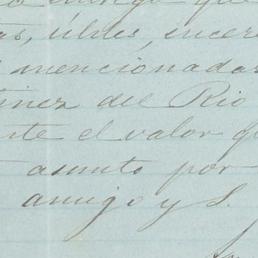 amigo que
útiles, incer
mencionadas
tinez del Rio
te el valor q
asunto por
amigo y S.